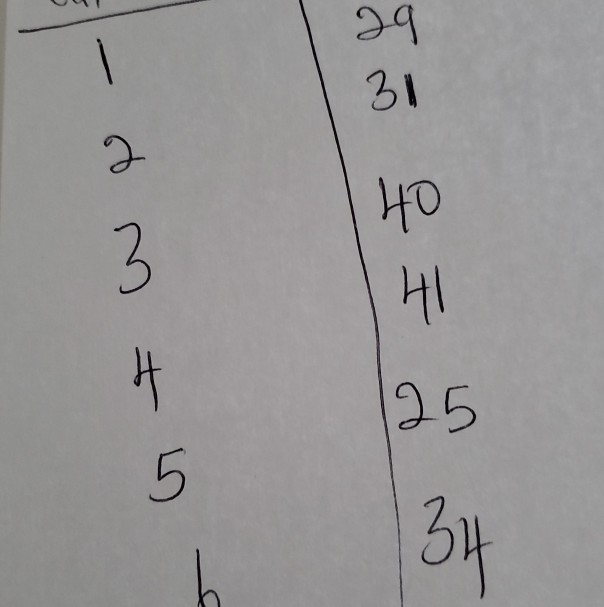 1 29
2 31
3 40
4 41
5 25
6 34